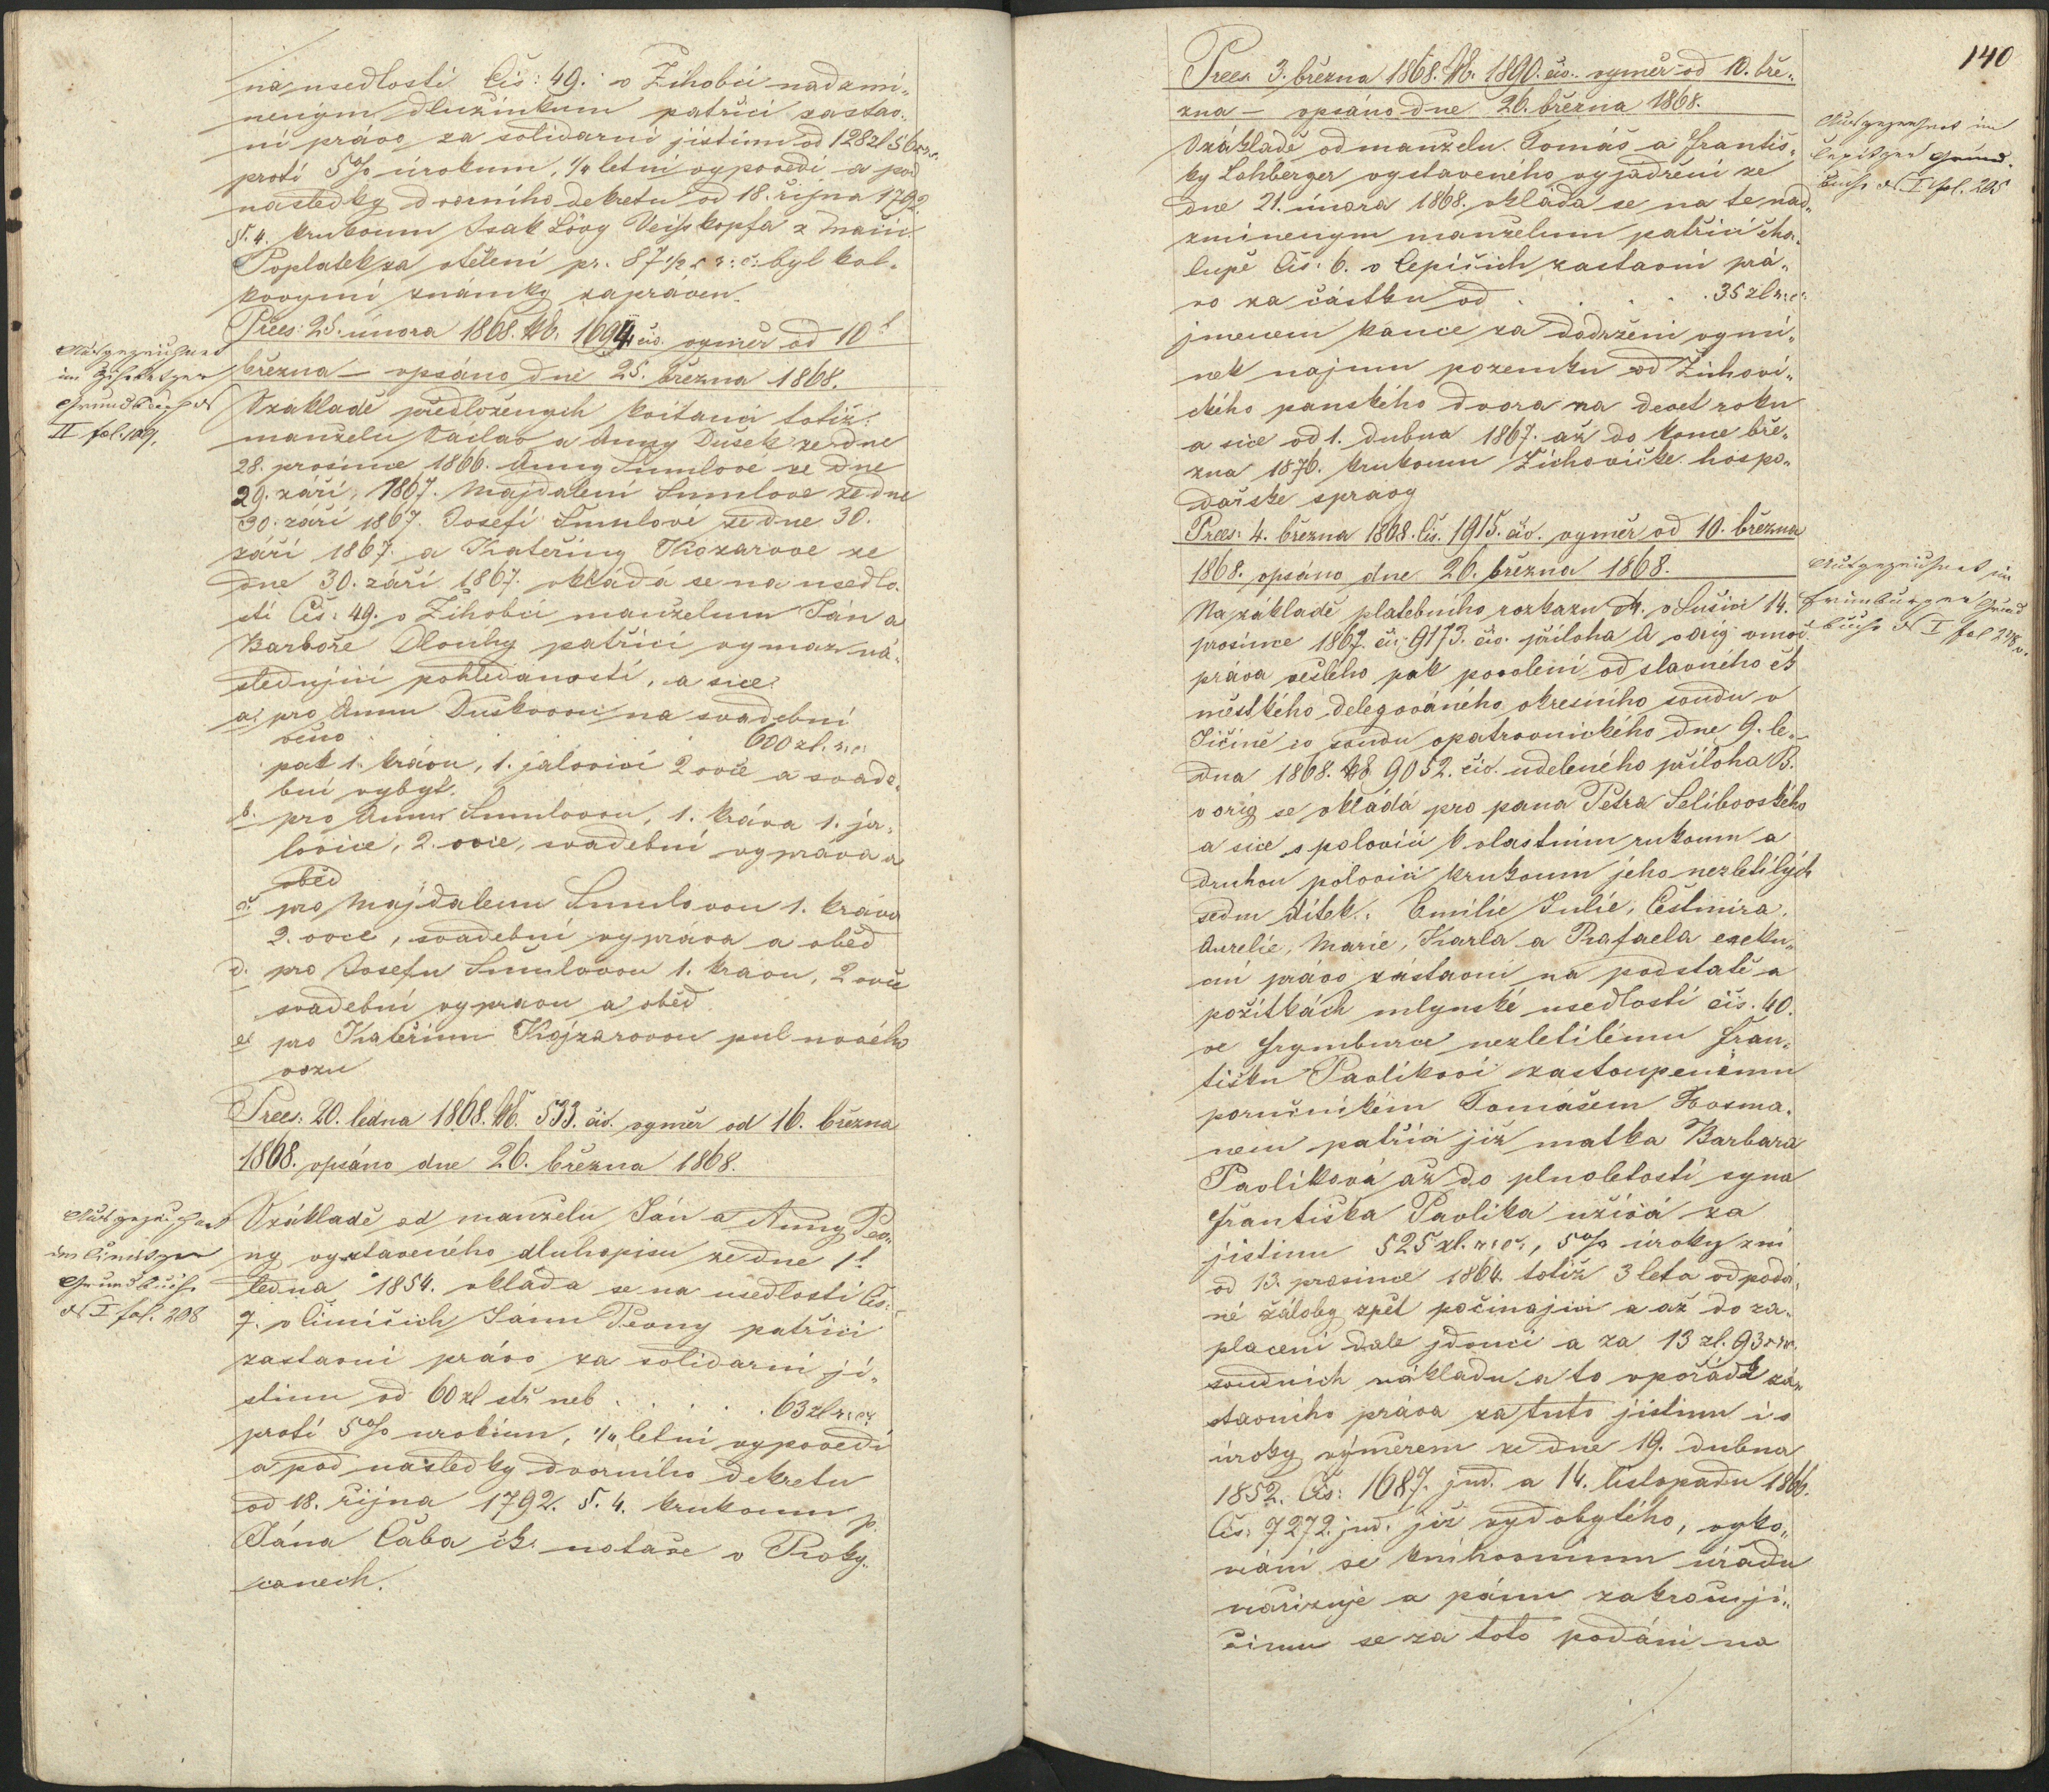 na usedlosti Čis: 49. v Žihobci nadzmi„
neným dlužníkum patřící zastav„
ní právo za solidarní jistinu od 128 zl 56
proti 5% úrokum, 1/4 letní vypovědi a pod
následky dvorního dekretu od 18. října 1792
§. 4. krukoum Isak Löwy Veiskopfa z
Poplatek za vtělení pr. 87 1/2 x r: č: byl kol„
kovými známky zapráven.
Prees: 25. února 1868. čis. 1694 čiv. výměr od 10t
března – vpsáno dne 25. března 1868.
Ausgezeichnet
im Zihobetzer
Grundbuch
II fol. 109,
Vzákladě předložených kvitanci totiž:
manželu Václav a Anny Dušek ze dne
28. prosince 1866. Anny Šmulové ze dne
29. září, 1867. Majdaleni Šmulove ze dne
30. září 1867. Josefi Šmulové ze dne 30.
září 1867. a Kateřiny Kozarove ze
dne 30. září 1867. vkládá se na usedlo„
sti Čis: 49. v Žihobci manželum Ján a
Barboře Dlouhy patřící vymaz ná„
sledujicí pohledanosti, a sice:
a: pro Annu Duskovou na svadební
věno 600 zl. r: č:
pak 1. krávu, 1. jalovici 2 ovce a svade„
bní vybyt.
b. pro Annu Šmulovou, 1. kráva 1. ja„
lovice, 2. ovce, svadební vyprava a
oběd
c. pro Majdalenu Šmulovou 1. kráva
2. ovce, svadební vypráva a oběd
d. pro Josefu Šmulovou 1. kravu, 2 ovce
svadební vypravu a oběd
e. pro Kateřinu Kojzarovou pul nového
vozu
Prees: 20. ledna 1868. čis. 533. čiv. výměr od 16. března
1868. vpsáno dne 26. března 1868.
Ausgezeichnet
im Cimitzer
Grundbuch
I fol. 208
Vzákladě od manželu Ján a Anny Pev„
ny vystaveného dluhopisu ze dne 1t
ledna 1854. vkláda se na usedlosti Čis:
7. v Čimicich Jánu Pevny patřící
zastavni právo za solidarní ji„
stinu od 60 zl stř neb . . . . . 63 zl r: č:
proti 5% urokum, 1/4 letní vypovědi
a pod nasledky dvorního dekretu
od 18. října 1792. §. 4. krukoum p.
Jána Čaba čk. notaře v Roky„
canech.
140
Prees. 3. března 1868. čis. 1890. čiv. výměr od 10. bře„
zna – vpsáno dne 26. března 1868.
Ausgezeichnet im
Cepitzer Grund„
buche I fol. 205
Vzákladě od manželu Tomáš a Františ„
ky Lohberger vystaveného vyjádření ze
dne 21. února 1868. vkláda se na te nad„
zminenym manželum patřící cha„
lupě Čis: 6. v Čepicich zastavní prá„
vo za částku od . . . . . 35 zl r: č:
jmenem kauce za dodržení vymi„
nek najmu pozemku od Žichovi„
ckého panského dvora na devet roku
a sice od 1. dubna 1867. až do konce bře„
zna 1876. krukoum Žichovické hospo„
dařské spravy
Prees: 4. března 1868. čis. 1915. čiv. výměr od 10. března
1868. vpsáno dne 26. března 1868.
Ausgezeichnet im
Frimburger Grund
buche I fol 278
Na základě platebního rozkazu v Sušici 14.
prosince 1867. či. 9173. čiv. příloha A v orig v moc
práva vešlého pak povolení od slavného čk
městkého delegováného okresního soudu v
Jičíně co soudu opatrovnického dne 9. le„
dna 1868. čis 9052. čiv. udeleného příloha B.
v orig se vkládá pro pana Petra Selibovského
a sice s polovici k vlastním rukoum a
druhou polovici krukoum jeho nezletilých
sedm dítek: Emilie, Julie, Čestmíra,
Aurelie, Marie, Karla a Rafaela exeku„
ční právo zástavní na podstatě a
požitkách mlynské usedlosti čis. 40.
ve Frymburce nezletilému Fran„
tišku Pavlikovi zastoupenému
poručníkem Tomášem Kosma„
nem patřící již matka Barbara
Pavliková až do plnoletosti syna
Františka Pavlika užívá za
jistinu 525 zl. r: č:, 5% úroky zni
od 13. prosince 1864. totiž 3 leta od podá„
né žáloby zpět počínající a až do za„
placení dale jdoucí a za 13 zl. 93
soudních nákladu a to vpořádí zá„
stavního práva za tuto jistinu i s
úroky výměrem ze dne 19. dubna
1852. Čis: 1687. jud. a 14. listopadu 1866.
Čis: 7272. jud. již vydobytého, vyko„
nání se knihovnímu úřadu
nařizuje a pánu zakročují„
címu se za toto podání na